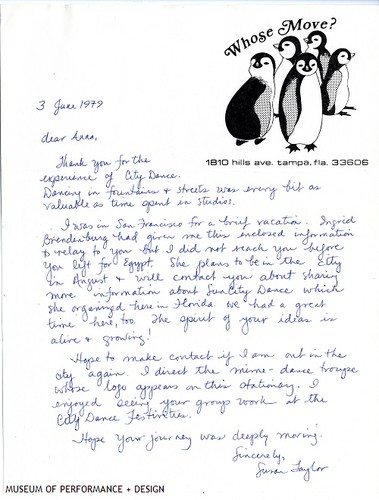 Whose Move?
1810 hills ave. tampa, fla. 33606
3 June 1979
dear Anna,
Thank you for the
experience of City Dance.
Dancing in fountains & streets was every bit as
valuable as time spent in studios.
I was in San Francisco for a brief vacation. Ingrid
Brendenburg had given me this enclosed information
to relay to you but I did not reach you before
you left for Egypt. She plans to be in the City
in August & will contact you about sharing
more information about SunCity Dance which
she organized here in Florida. We had a great
time here, too. The spirit of your ideas is
alive & growing!
Hope to make contact if I am out in the
city again. I direct the mime-dance troupe
whose logo appears on this stationary. I
enjoyed seeing your group work at the
City Dance Festivities.
Hope your journey was deeply moving!
Sincerely,
Susan Taylor
MUSEUM OF PERFORMANCE + DESIGN